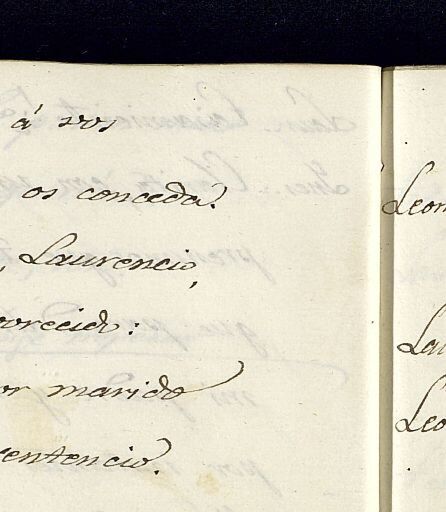 á vos
os conceda.
, Laurencio,
orecido:
or marido
sentencio.
Leon
Lau
Leo